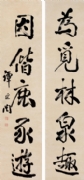 為覓林泉趣
因偕風承遊
譚延闓